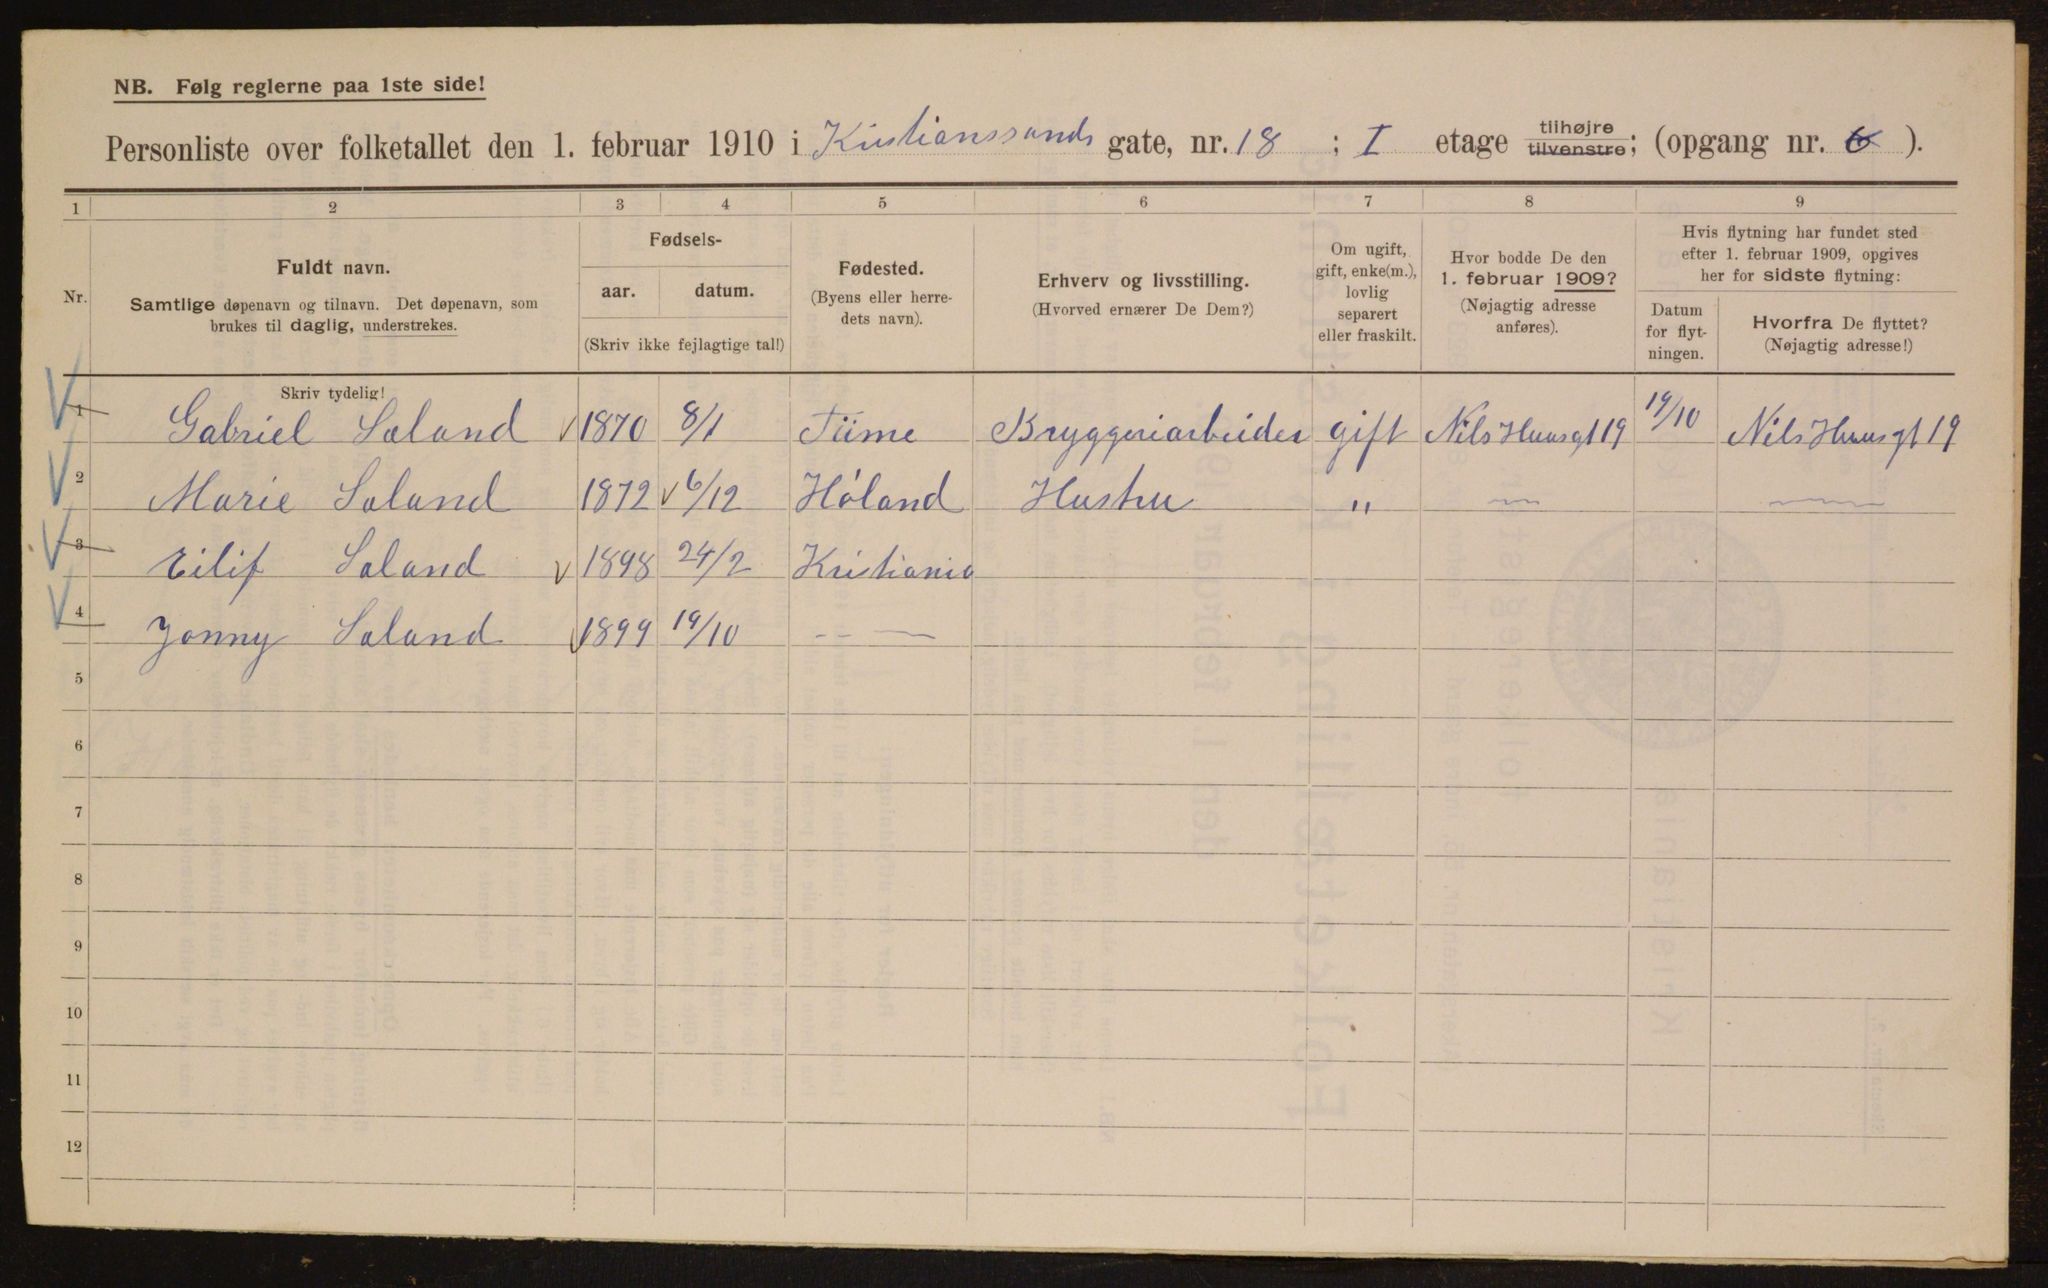 NB. Følg reglerne paa 1ste side!
Personliste over folketallet den 1. februar 1910 i Kristianssands gate, nr. 18 ; I etage tilhøjre tilvenstre; (opgang nr. 6 ).
1 2 3 4 5 6 7 8 9
Nr.
Fuldt navn.
Samtlige døpenavn og tilnavn. Det døpenavn, som
brukes til daglig, understrekes.
Fødsels-
aar. datum.
(Skriv ikke fejlagtige tal!)
Fødested.
(Byens eller herre-
dets navn).
Erhverv og livsstilling.
(Hvorved ernærer De Dem?)
Om ugift,
gift, enke(m.),
lovlig
separert
eller fraskilt.
Hvor bodde De den
1. februar 1909?
(Nøjagtig adresse
anføres).
Hvis flytning har fundet sted
efter 1. februar 1909, opgives
her for sidste flytning:
Datum
for flyt-
ningen.
Hvorfra De flyttet?
(Nøjagtig adresse!)
Skriv tydelig!
1 Gabriel Soland 1870 8/1 Tiime Bryggeriarbeider gift Nils Huusgt 19 19/10 Nils Huusgt 19
2 Marie Soland 1872 6/12 Høland Hustru " — —
3 Eilif Soland 1898 24/2 Kristiania
4 Jonny Soland 1899 19/10 — —
5
6
7
8
9
10
11
12